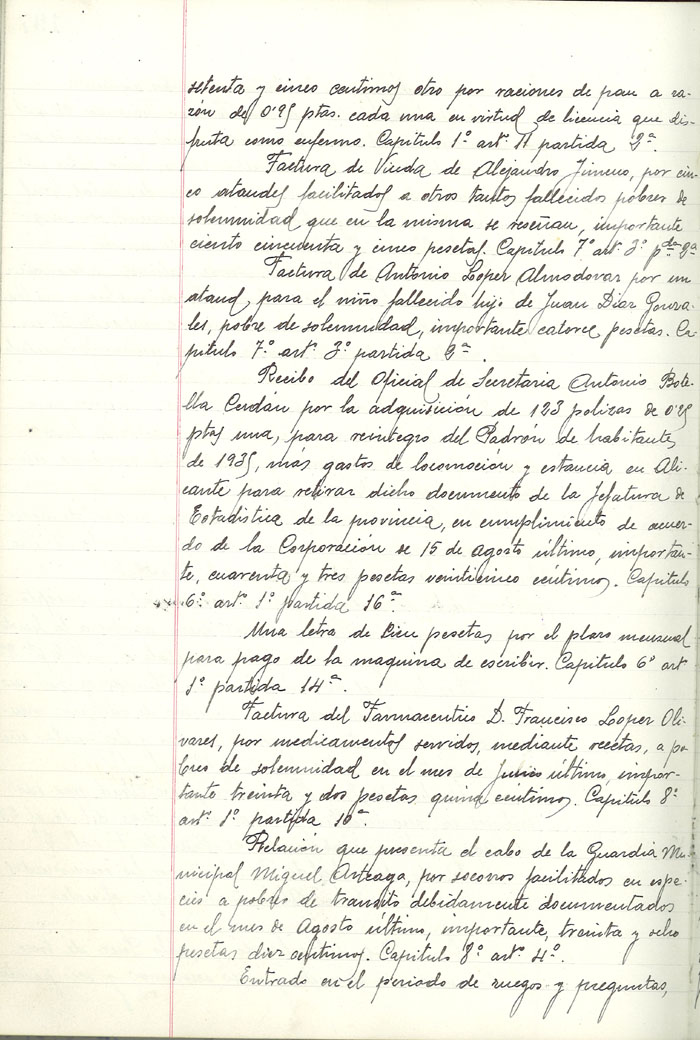 setenta y cinco centimos otro por raciones de pan a ra-
zón de 0'95 ptas. cada una en virtud de licencia que dis-
fruta como enfermo. Capitulo 1º artº 11 partida 2ª.
Factura de Viuda de Alejandro Jimeno, por cin-
co ataudes facilitados a otros tantos fallecidos pobres de
solemnidad que en la misma se reseñan, importante
ciento cincuenta y cinco pesetas. Capitulo 7º artº 3º pda 9ª
Factura de Antonio Lopez Almodovar por un
ataud para el niño fallecido hijo de Juan Diaz Gonza-
les, pobre de solemnidad, importante catorce pesetas. Ca-
pitulo 7º artº 3º partida 9ª.
Recibo del Oficial de Secretaria Antonio Bote-
lla Cerdán por la adquisición de 123 polizas de 0'25
ptas una, para reintegro del Padrón de habitantes
de 1935, más gastos de locomoción y estancia en Ali-
cante para retirar dicho documento de la Jefatura de
Estadistica de la provincia, en cumplimiento de acuer-
do de la Corporación se 15 de agosto último, importan-
te, cuarenta y tres pesetas veinticinco céntimos. Capitulo
6º artº 1º partida 16ª.
Una letra de cien pesetas por el plazo mensual
para pago de la maquina de escribir. Capitulo 6º art
1º partida 14ª.
Factura del Farmaceutico D. Francisco Lopez Oli-
vares, por medicamentos servidos, mediante recetas, a po-
bres de solemnidad en el mes de Junio último, impor-
tante treinta y dos pesetas quince centimos. Capitulo 8º
artº 1º partida 10ª.
Relación que presenta el cabo de la Guardia Mu-
nicipal Miguel Arteaga, por socorros facilitados en espe-
cies a pobres de transito debidamente documentados
en el mes de Agosto último, importante, treinta y ocho
pesetas diez centimos. Capitulo 8º artº 4º.
Entrado en el periodo de ruegos y preguntas,